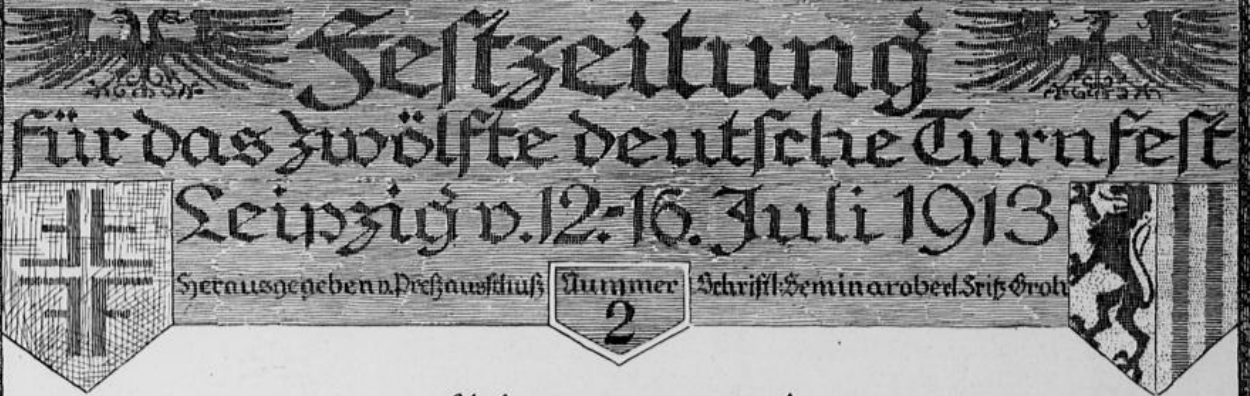 Festzeitung
für das zwölfte deutsche Turnfest
Leipzig v. 12.-16. Juli 1913
Herausgegeben v. Preßausschuß Nummer 2 Schriftl: Seminaroberl. Fritz Groh